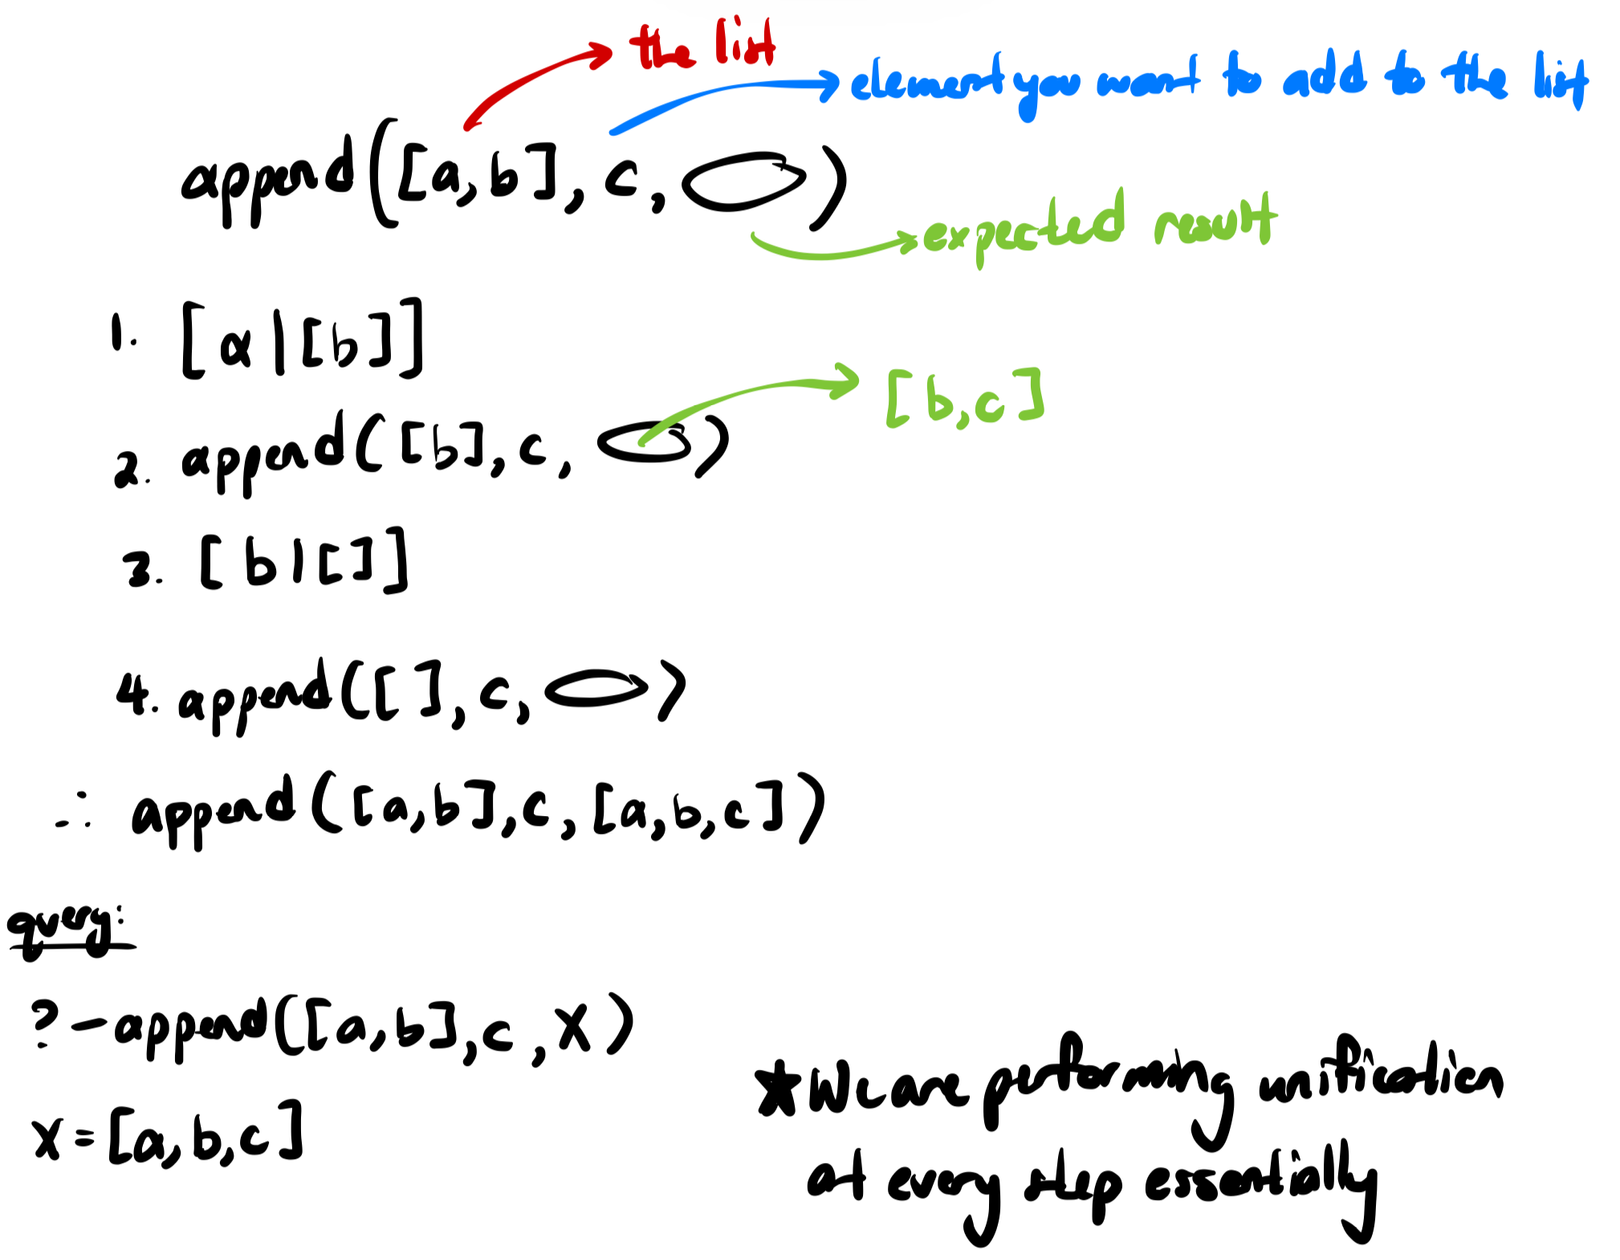 the list
element you want to add to the list
append([a,b], c, )
expected result
1. [a|[b]]
[b,c]
2. append([b], c, )
3. [b|[]]
4. append([], c, )
∴ append([a,b], c, [a,b,c])
query:
?-append([a,b], c, X)
X=[a,b,c]
★ We are performing unification
at every step essentially